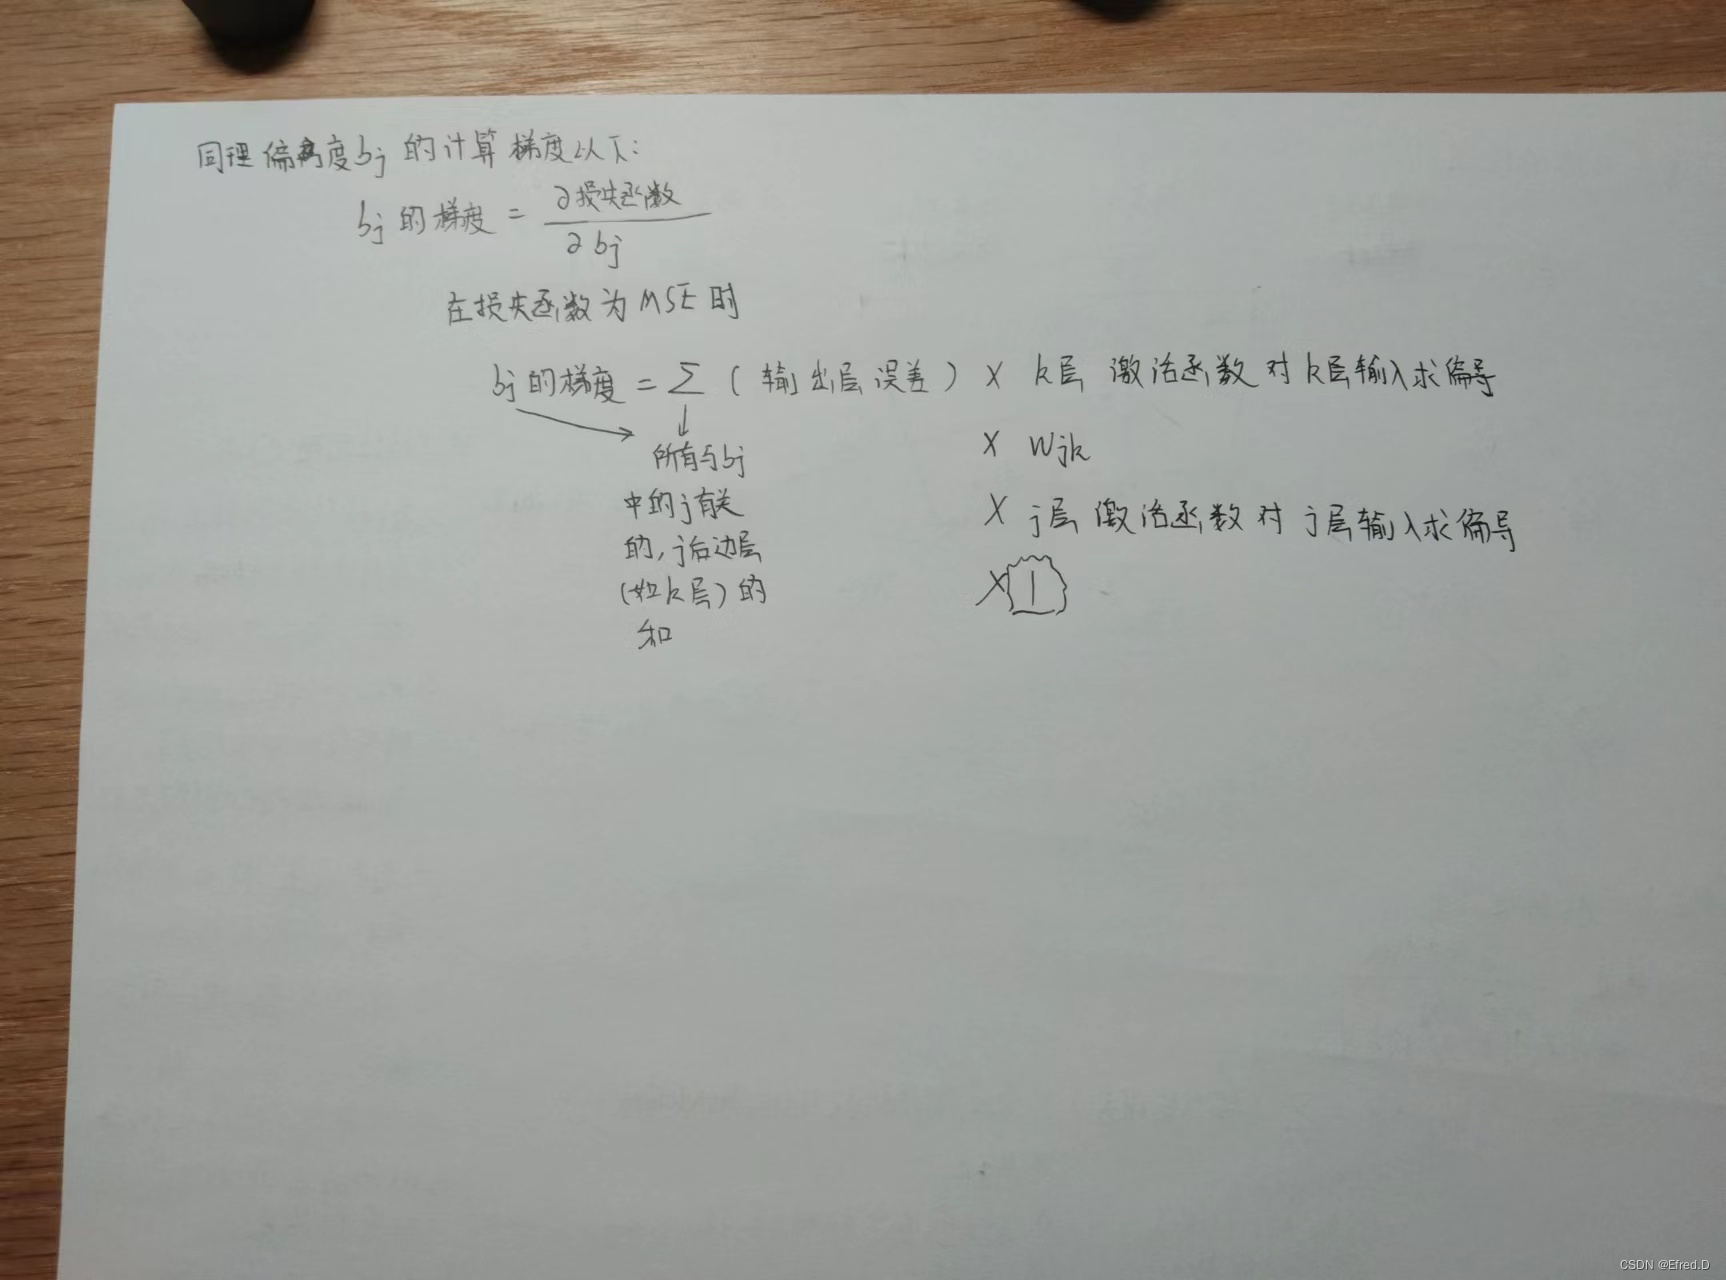 同理偏离度bj的计算梯度以下:
bj的梯度 = ∂损失函数
∂bj
在损失函数为MSE时
bj的梯度 = Σ (输出层误差) × k层 激活函数对k层输入求偏导
× Wjk
× j层 激活函数对j层输入求偏导
× 1
所有与bj
中的j有关
的, j后边层
(如k层) 的
和
CSDN @Efred.D